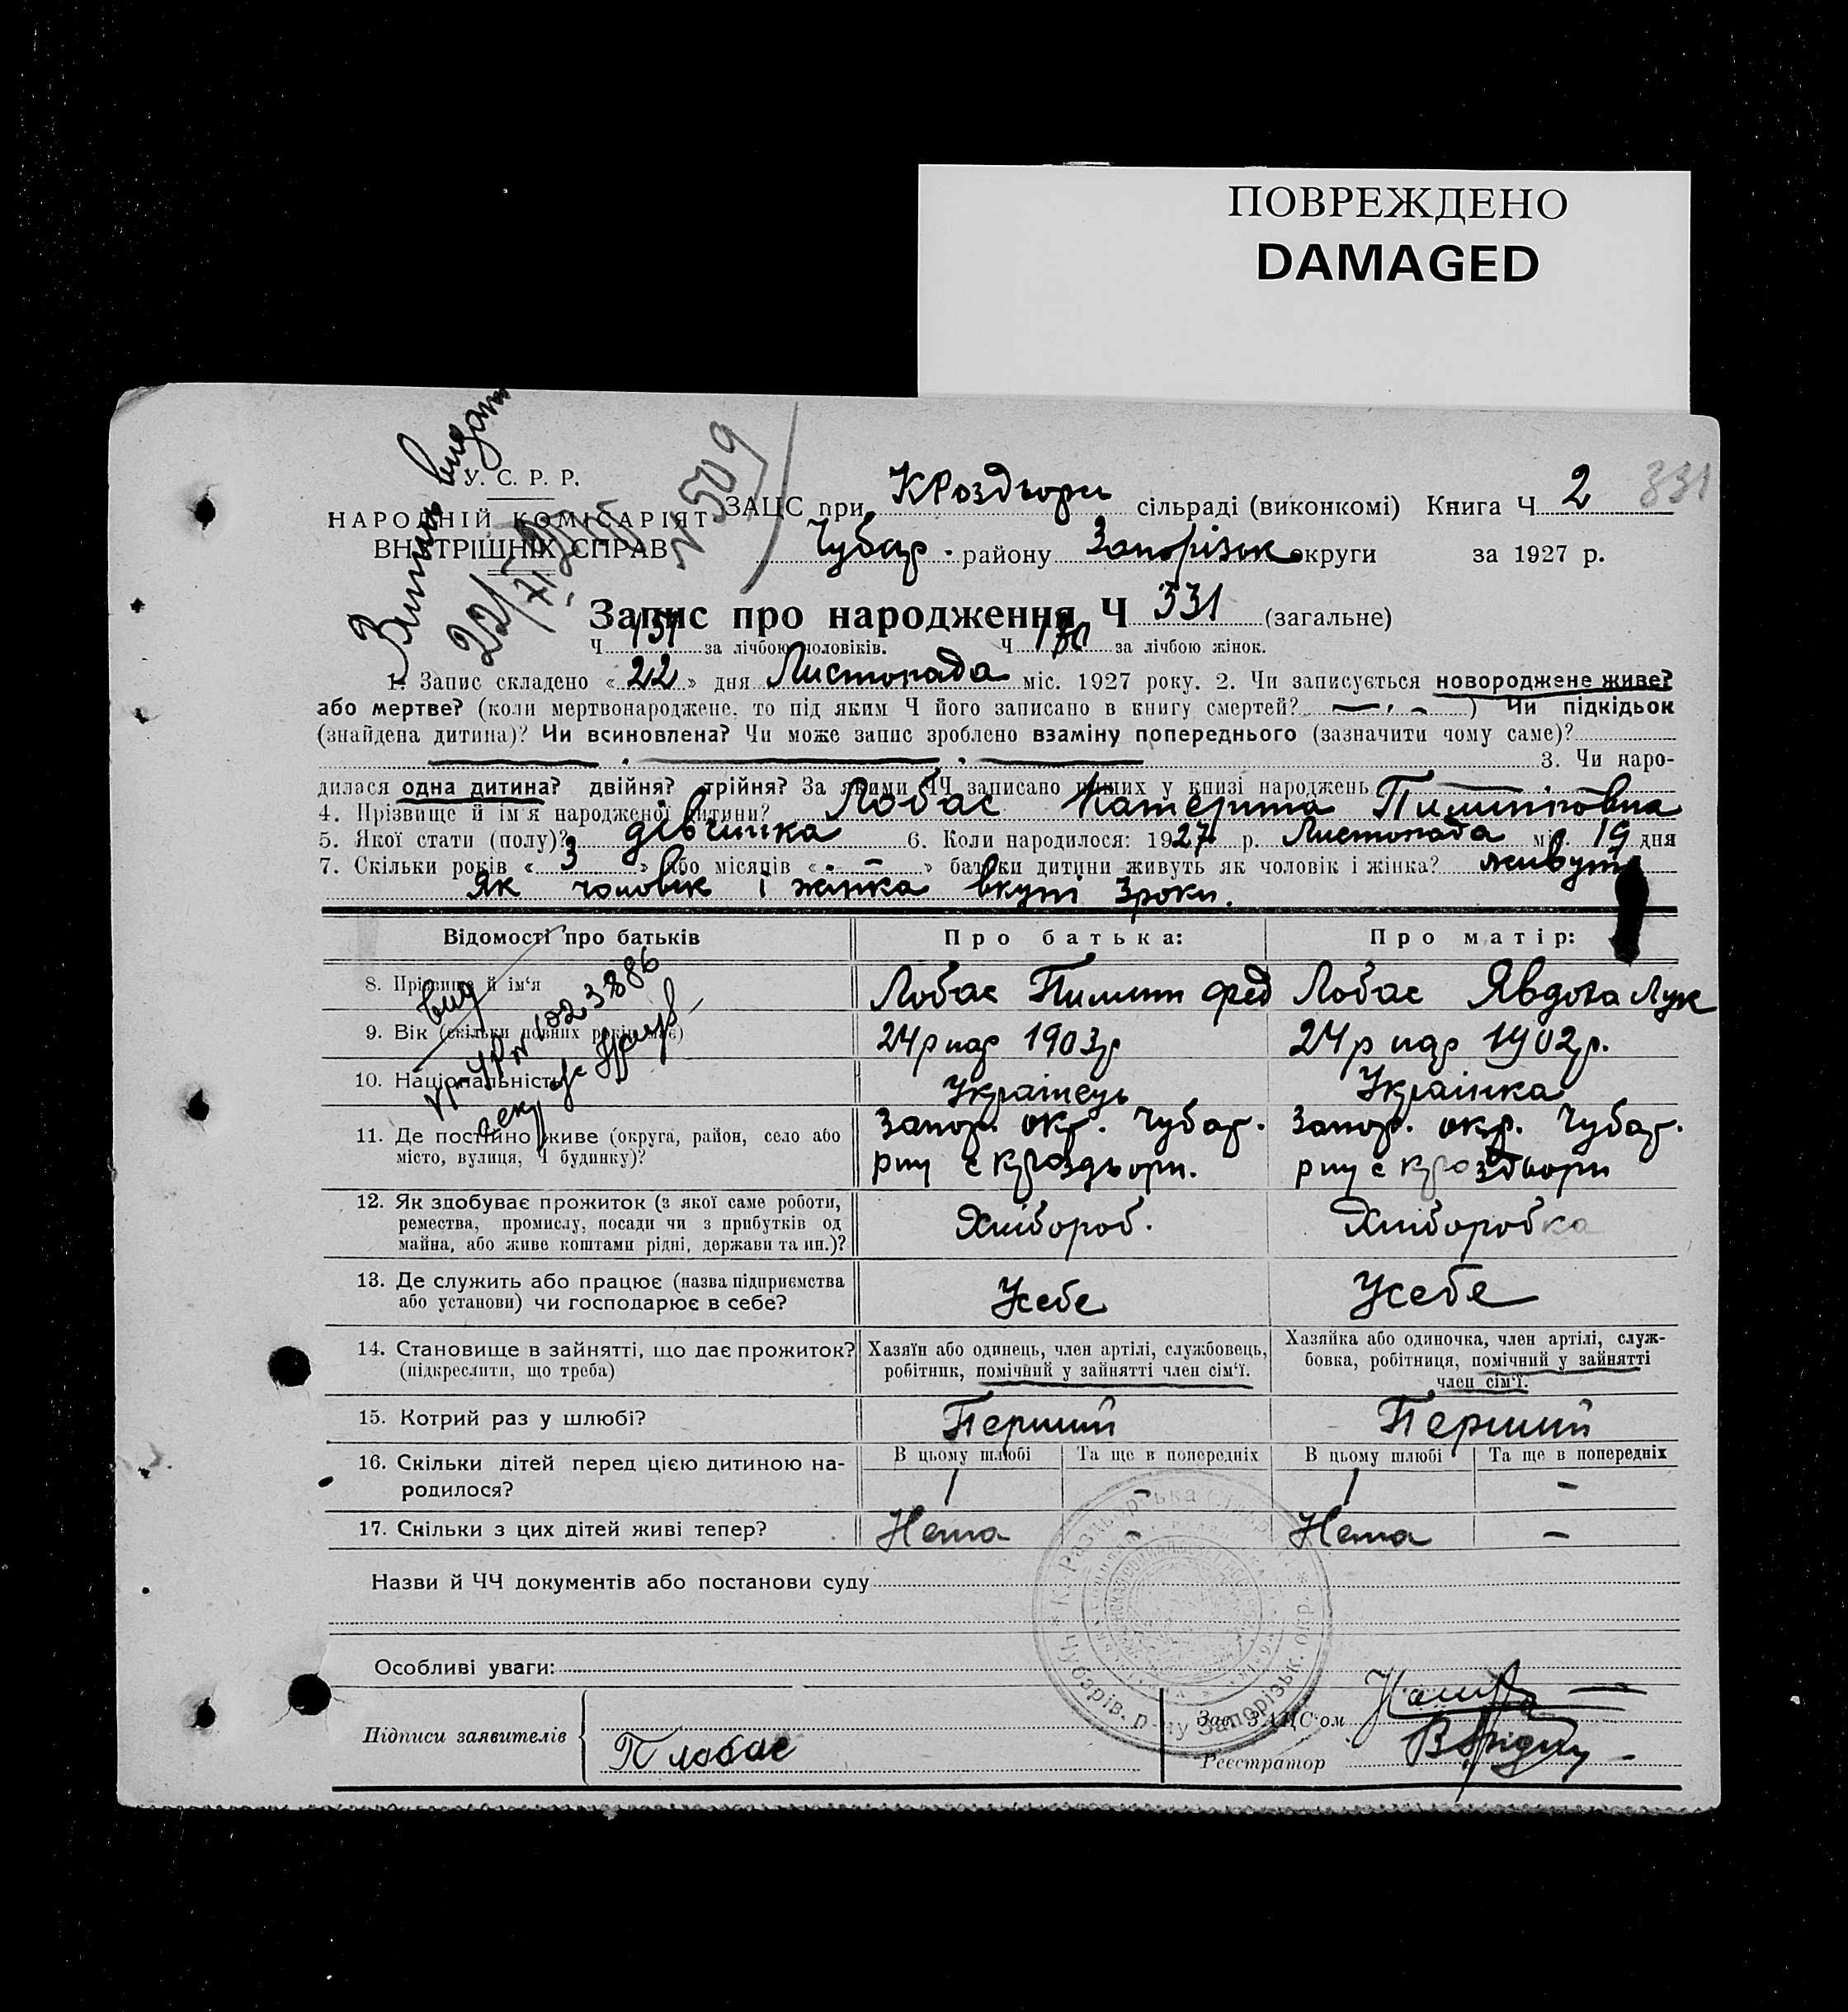 ПОВРЕЖДЕНО
DAMAGED
Витяг видан
У. С. Р. Р.
НАРОДНІЙ КОМІСАРІЯТ
ВНУТРІШНІХ СПРАВ
22/
№ 509
ЗАЦС при КРоздори сільраді (виконкомі) Книга Ч 2 331
Чубар. району Запорізьк округи за 1927 р.
Запис про народження Ч 331 (загальне)
Ч 151 за лічбою чоловіків. Ч 180 за лічбою жінок.
1. Запис складено «22» дня Листопада міс. 1927 року. 2. Чи записується новороджене живе?
або мертве? (коли мертвонароджене, то під яким Ч його записано в книгу смертей? — , - ) Чи підкідьок
(знайдена дитина)? Чи всиновлена? Чи може запис зроблено взаміну попереднього (зазначити чому саме)?
3. Чи наро-
дилася одна дитина? двійня? трійня? За якими ЧЧ записано інших у книзі народжень
4. Прізвище й ім'я народженої дитини? Лобас Катерина Пилипівна
5. Якої стати (полу)? дівчинка 6. Коли народилося: 1927 р. Листопада міс. 19 дня
7. Скільки років «3» або місяців «-» батьки дитини живуть як чоловік і жінка? живуть
Як чоловік і жінка вкупі 3 роки.
Відомості про батьків Про батька: Про матір:
8. Прізвище й ім'я Лобас Пилип Фед Лобас Явдоха Лук
9. Вік (скільки повних років має) 24р нар 1903р 24р нар 1902р.
10. Національність Українець Українка
11. Де постійно живе (округа, район, село або Запор. окр. Чубар. Запор. окр. Чубар.
місто, вулиця, Ч будинку)? рну с кроздори. рну с кроздори
12. Як здобуває прожиток (з якої саме роботи,
ремества, промислу, посади чи з прибутків од Хлібороб. Хлібороб ка
майна, або живе коштами рідні, держави та ин.)?
13. Де служить або працює (назва підприємства
або установи) чи господарює в себе? Усебе Усебе
14. Становище в зайнятті, що дає прожиток? Хазяїн або одинець, член артілі, службовець, Хазяйка або одиночка, член артілі, служ-
(підкреслити, що треба) робітник, помічний у зайнятті член сім'ї. бовка, робітниця, помічний у зайнятті
член сім'ї.
15. Котрий раз у шлюбі? Перший Перший
16. Скільки дітей перед цією дитиною на- В цьому шлюбі Та ще в попередніх В цьому шлюбі Та ще в попередніх
родилося? 1 - 1 -
17. Скільки з цих дітей живі тепер? Нема - Нема -
Назви й ЧЧ документів або постанови суду
Особливі уваги:
Чубарів. р-ну Запорізьк. окр.
Підписи заявителів П лобас
Зав. ЗАЦС'ом
Реєстратор